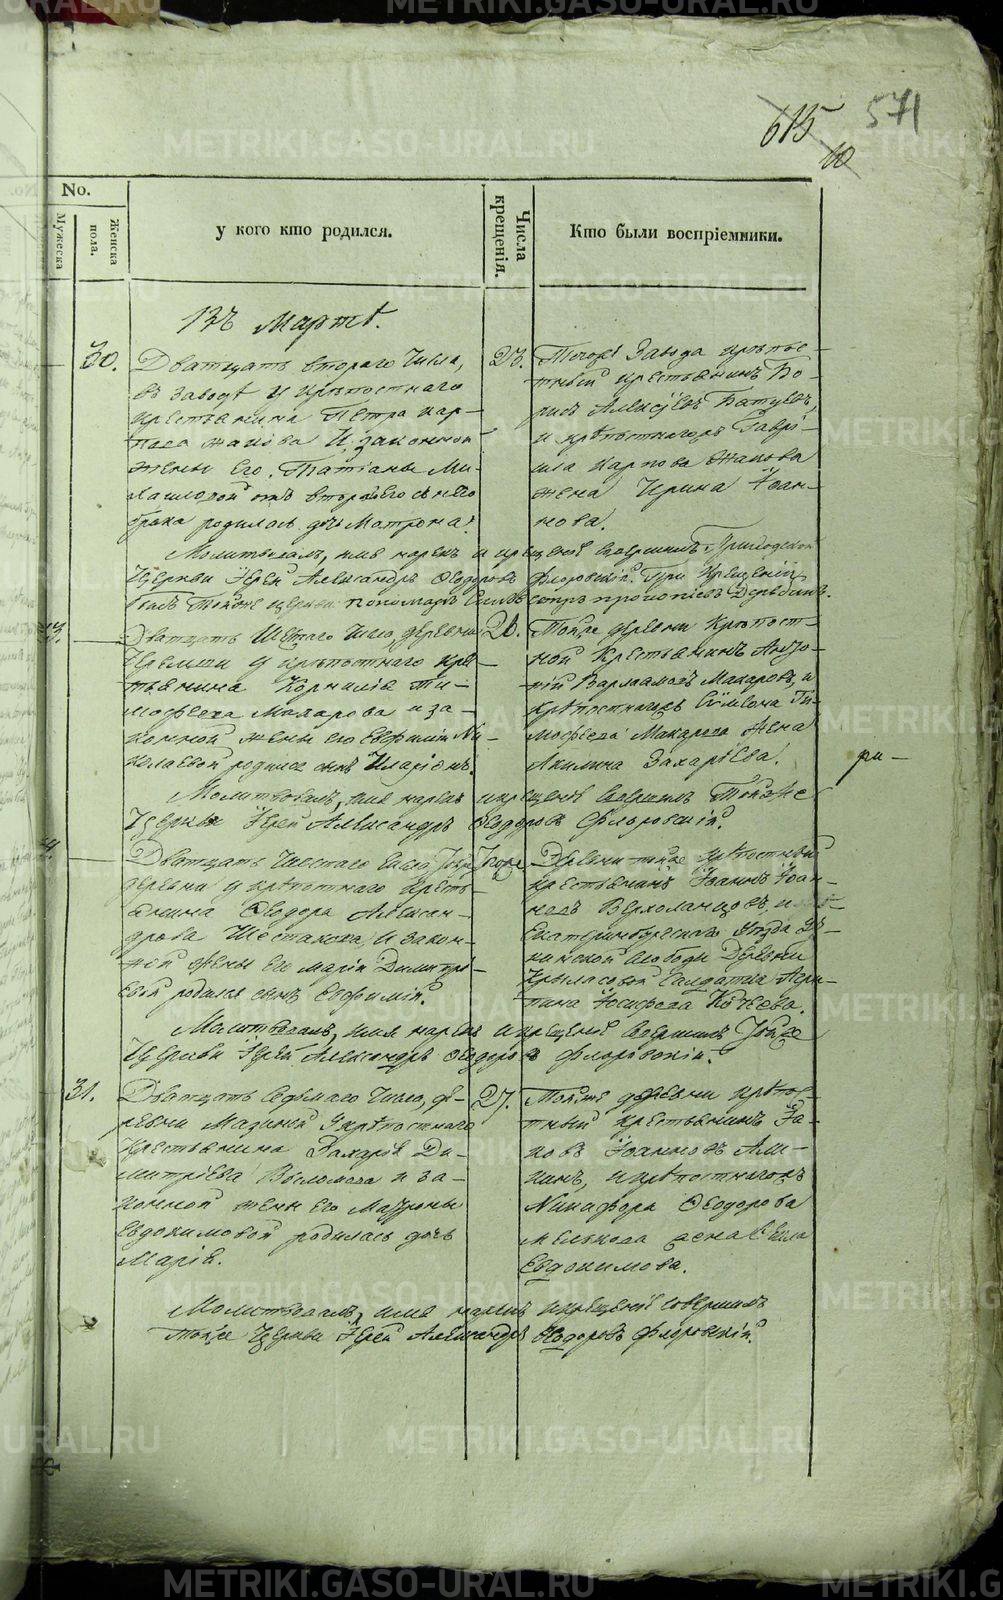 615
571
10
No.
Мужеска
Женска
пола.
у кого кто родился.
Числа
крещенія.
Кто были воспріемники.
Въ Мартѣ.
30.
Дватцать втораго числа,
въ заводѣ у крѣпостнаго
крестьянина Петра Кар-
пова Жакова и законной
жены его Татіаны Ми-
хайловой отъ втораго его съ нею
брака родилась дочь Матрона.
23.
Тогожъ Завода крѣпос-
тный крестьянинъ Бо-
рисъ Алексѣевъ
и крѣпостнагожъ Гаврі-
ила Карпова Жакова
жена Ирина Іоан-
нова.
Молитвовалъ, имя нарекъ и крещеніе совершилъ Приходской
Церкви Іерей Александръ Ѳеодоровъ Флоровскій. При крещеніи
былъ тойже церкви пономарь
Дватцать Шестаго числа, деревни
у крѣпостнаго крес-
тьянина Корнилія Ти-
мофеева Макарова и за-
конной жены его Евфиміи Ни-
колаевой родился сынъ Иларіонъ.
26.
Тойже деревни Крѣпост-
ной Крестьянинъ Анто-
ній Варлаамовъ Макаровъ, и
крѣпостнагожъ Симеона Ти-
мофеева Макарова жена
Акилина Захарьева.
ри —
Молитвовалъ, имя нарекъ и крещеніе совершилъ Тойже
Церкви Іерей Александръ Ѳеодоровъ Флоровскій.
Дватцать шестаго числа тойже
деревни у крѣпостнаго кресть-
янина Ѳеодора Алексан-
дрова Шестакова и закон-
ной жены его Маріи Димитрі-
евой родился сынъ Евфимій.
Деревни тойже крѣпостный
крестьянинъ Іоаннъ Іоан-
новъ Верхоланцовъ, и
Екатеринбургскаго уѣзда
слободы Деревни
Крыласовой Салдатка Агри-
пина Іосифова
Молитвовалъ, имя нарекъ и крещеніе совершилъ Тойже
Церкви Іерей Александръ Ѳеодоровъ Флоровскій.
31.
Дватцать седьмаго числа, де-
ревни Мазиной у крѣпостнаго
Крестьянина Захарія Ди-
митріева и за-
конной жены его Матроны
Евдокимовой родилась дочь
Марія.
27.
Тойже деревни крѣпос-
тный крестьянинъ Іа-
ковъ Іоанновъ Али-
кинъ, и крѣпостнагожъ
Никифора Ѳеодорова
Мелькова жена
Евдокимова.
Молитвовалъ, имя нарекъ и крещеніе совершилъ
тойже Церкви Іерей Александръ Ѳеодоровъ Флоровскій.
METRIKI.GASO-URAL.RU